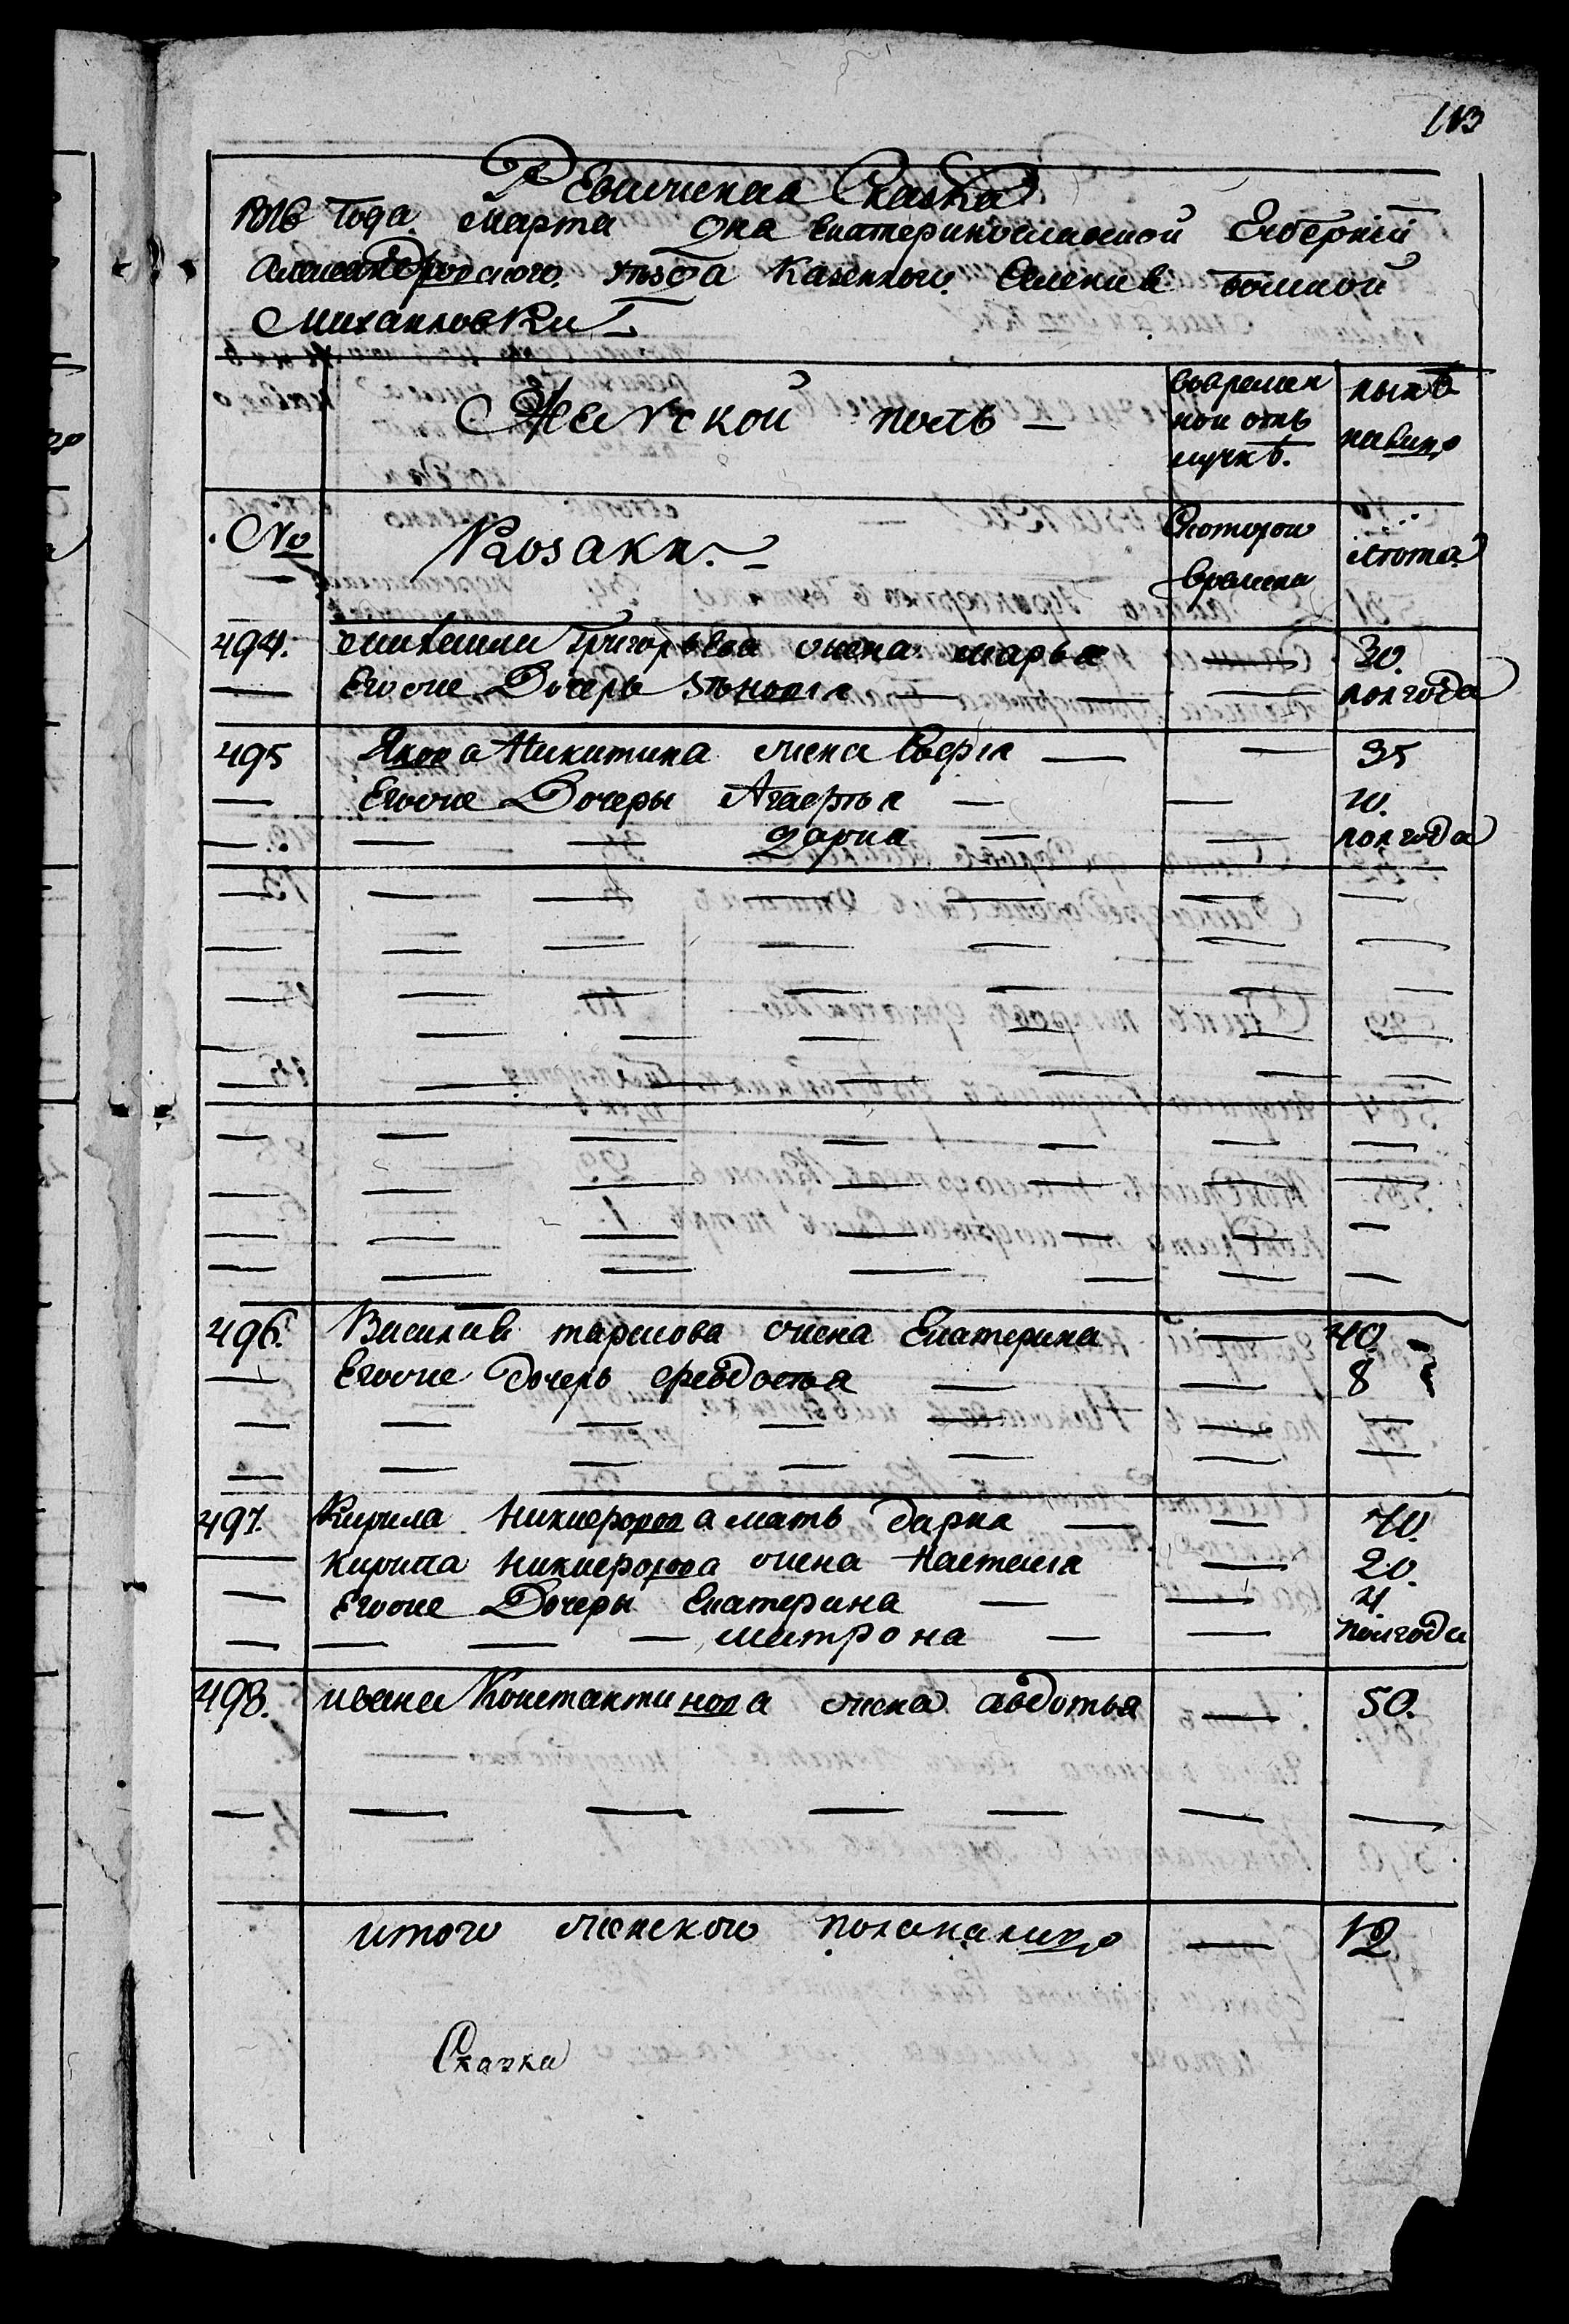 113
Ревижская Сказка
1816 Года марта дня Екатеринославской Губерніи
Александровского уъзда Казенного Селения болшой
Михаиловки
Женской полъ —
вовремен
ной отъ
лучкѣ.
нынѣ
налицо
№
Козаки.
Скоторого
времени
лѣта
494. Михаила Григорьева жена марья — 30.
— Егоже Дочерь — — — полгода
495 Якова Никитина жена Софія — — 35
— Егоже Дочеры Агафья — — 10.
— — — Дария — — полгода
496. Василия тарасова жена Екатерина — 40.
— Егоже дочерь феодосья — — 8
497. Кирила Никифорова мать дария — — 70.
— Кирила Никифорова жена Настасия — 20.
— Егоже Дочеры Екатерина — — 4.
— — — — матрона — — полгода
498. ивана Константинова жена авдотья — 50.
итого женского пола налицо — 12
Сказка